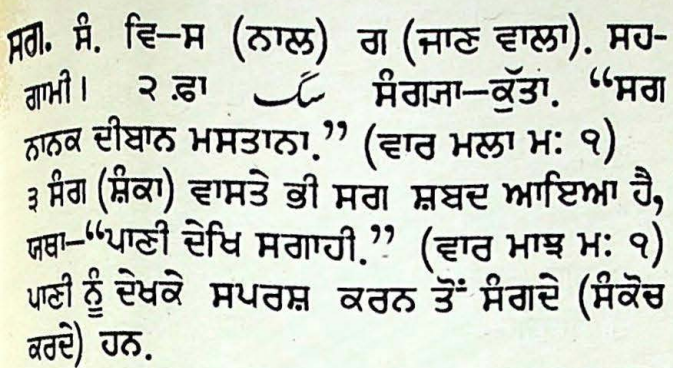 ਸਗ. ਸੰ. ਵਿ–ਸ (ਨਾਲ) ਗ (ਜਾਣ ਵਾਲਾ). ਸਹ-
ਗਾਮੀ। ੨ ਫ਼ਾ سگ ਸੰਗ੍ਯਾ–ਕੁੱਤਾ. “ਸਗ
ਨਾਨਕ ਦੀਬਾਨ ਮਸਤਾਨਾ.” (ਵਾਰ ਮਲਾ ਮਃ ੧)
੩ ਸੰਗ (ਸ਼ੰਕਾ) ਵਾਸਤੇ ਭੀ ਸਗ ਸ਼ਬਦ ਆਇਆ ਹੈ,
ਯਥਾ–“ਪਾਣੀ ਦੇਖਿ ਸਗਾਹੀ.” (ਵਾਰ ਮਾਝ ਮਃ ੧)
ਪਾਣੀ ਨੂੰ ਦੇਖਕੇ ਸਪਰਸ਼ ਕਰਨ ਤੋਂ ਸੰਗਦੇ (ਸੰਕੋਚ
ਕਰਦੇ) ਹਨ.